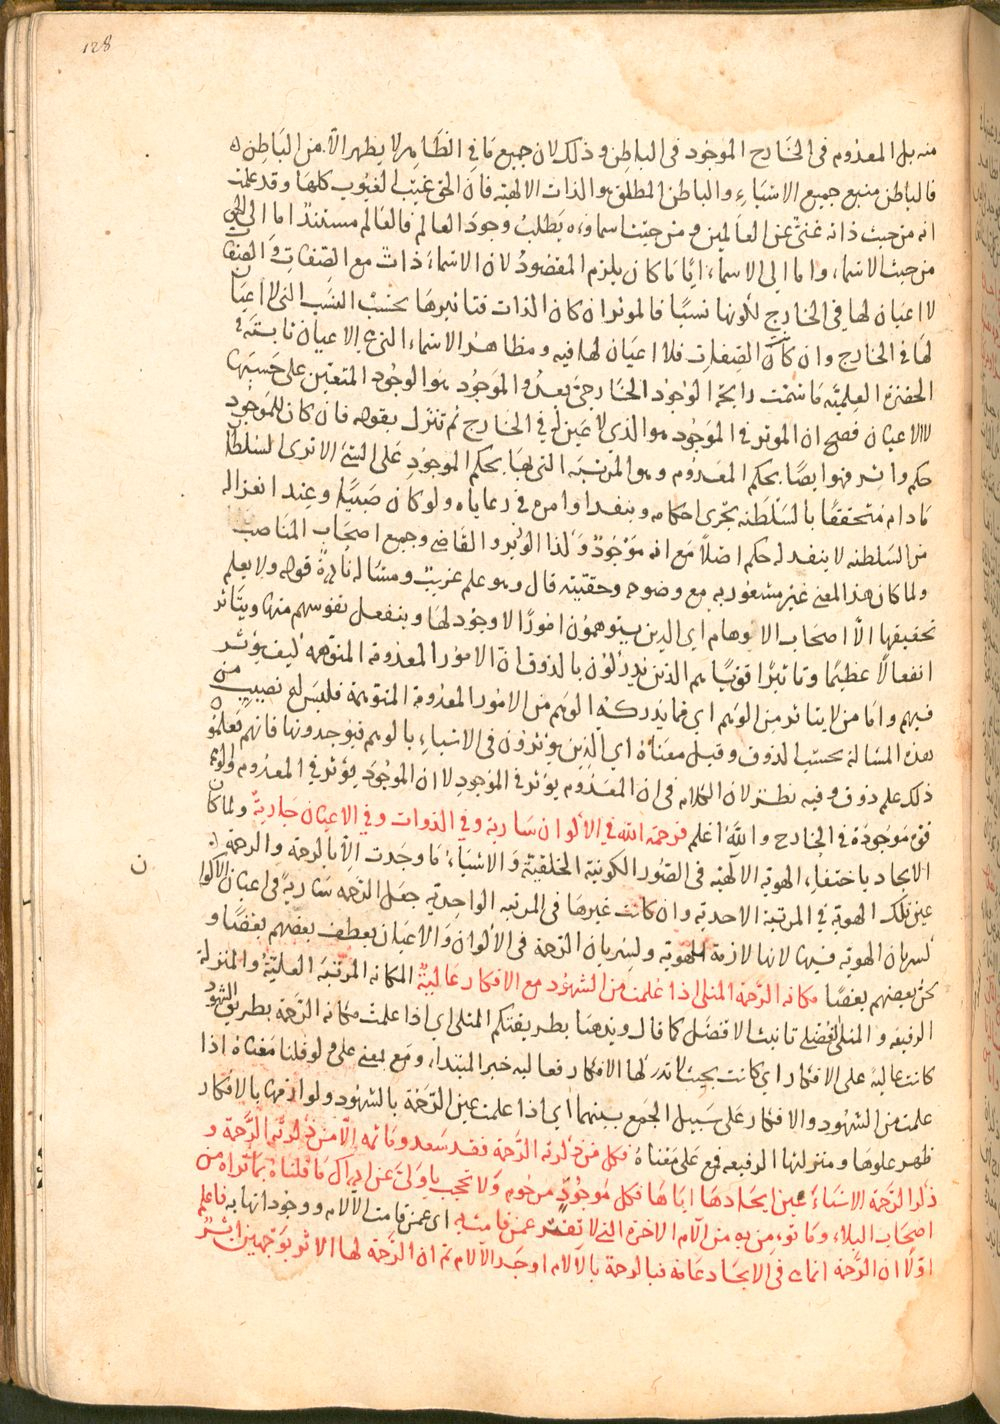 128
منه بل المعدوم فى الخارج الموجود فى الباطن وذلك لان جميع ما فى الظاهر لا يظهر الا من الباطن
فالباطن منبع جميع الاشياء والباطن المطلق هو الذات الالهية فان الحق غيب الغيوب كلها وقد علمت
انه من حيث ذاته غنى عن العالمين ومن حيث اسماؤه يطلب وجود العالم فالعالم مستند اما الى الحق
من حيث الاسماء واما الى الاسماء ايا ما كان يلزم المقصود لان الاسماء ذات مع الصفات والصفات
لا اعيان لها فى الخارج لكونها نسبا فالموثر ان كان الذات فتاثيرها بحسب النسب التى لا اعيان
لها فى الخارج وان كان الصفات فلا اعيان لها فيه ومظاهر الاسماء التى هى الاعيان ثابتة فى
الحضرة العلمية ما شمت رايحة الوجود الخارجى بعد والموجود هو الوجود المتعين على حسبها
لا الاعيان فصح ان الموثر فى الموجود هو الذى لا عين له فى الخارج ثم تنزل بقوله فان كان للموجود
حكم واثر فهو ايضا بحكم المعدوم وهو المرتبة التى لها يحكم الموجود على الشئ الا ترى السلطان
ما دام متحققا بالسلطنة يجرى احكامه وينفذ اوامره فى رعاياه ولو كان صبيا وعند انعزاله
من السلطنة لا ينفذ له حكم اصلا مع انه موجود وكذا الوزير والقاضى وجميع اصحاب المناصب
ولما كان هذا المعنى غير مشعور به مع وضوحه وحقيته قال وهو علم غريب ومسالة نادرة قوله ولا يعلم
تحقيقها الا اصحاب الاوهام اى الذين يتوهمون امورا لا وجود لها وينفعل نفوسهم منها ويتاثر
انفعالا عظيما وتاثيرا قويا هم الذين يدركون بالذوق ان الامور المعدومة المتوهمة كيف يؤثر
فيهم واما من لا يتاثر من الوهم اى فيما يدركه الوهم من الامور المعدومة المتوهمة فليس له نصيب من
هذه المسالة بحسب الذوق وقيل معناه اى الذين يؤثرون فى الاشياء بالوهم فيوجدونها فانهم يعلمون
ذلك علم ذوق وفيه نظر لان الكلام فى ان المعدوم يوثر فى الموجود لا ان الموجود يؤثر فى المعدوم والوهم
قوة موجودة فى الخارج والله اعلم فرحمة الله فى الاكوان سارية وفى الذوات وفى الاعيان جارية ولما كان
الايجاد باختفاء الهوية الالهية فى الصور الكونية الخلقية والاشياء ما وجدت الا بالرحمة والرحمة
ن
عين تلك الهوية فى المرتبة الاحدية وان كانت غيرها فى المرتبة الواحدية جعل الرحمة سارية فى اعيان الاكوان
لسريان الهوية فيها لانها لازمة للهوية ولسريان الرحمة فى الاكوان والاعيان يعطف بعضهم بعضا و
يحن بعضهم بعضا مكانة الرحمة المثلى اذا علمت من الشهود مع الافكار عالية المكانة المرتبة العلية والمنزلة
الرفيعة و المثلى الفضلى تانيث الافضل كما قال ويذهبا بطريقتكم المثلى اى اذا علمت مكانة الرحمة بطريق الشهود
كانت عالية على الافكار اى كانت بحيث لها الافكار فعالية خبر المبتدا، ومع بمعنى على ولو قلنا معناه اذا
علمت من الشهود والافكار على سبيل الجمع بينهما اى اذا علمت عين الرحمة بالشهود ولوازمها بالافكار
ظهر علوها ومنزلتها الرفيعة فمع على معناه فكل من ذكرته الرحمة فقد سعد وما ثمه الا من ذكرته الرحمة و
ذكر الرحمة الاشياء عين ايجادها اياها فكل موجود مرحوم ولا تحجب يا ولى عن ادراك ما قلناه بما تراه من
اصحاب البلاء وما تومن به من آلام الاخرة التى لا تفتر عمن قامت به اى عمن قامت الآلام ووجودها به فاعلم
اولا ان الرحمة انما هى فى الايجاد عامة فبالرحمة بالآلام اوجد الآلام ثم ان الرحمة لها الاثر بوجهين اثر